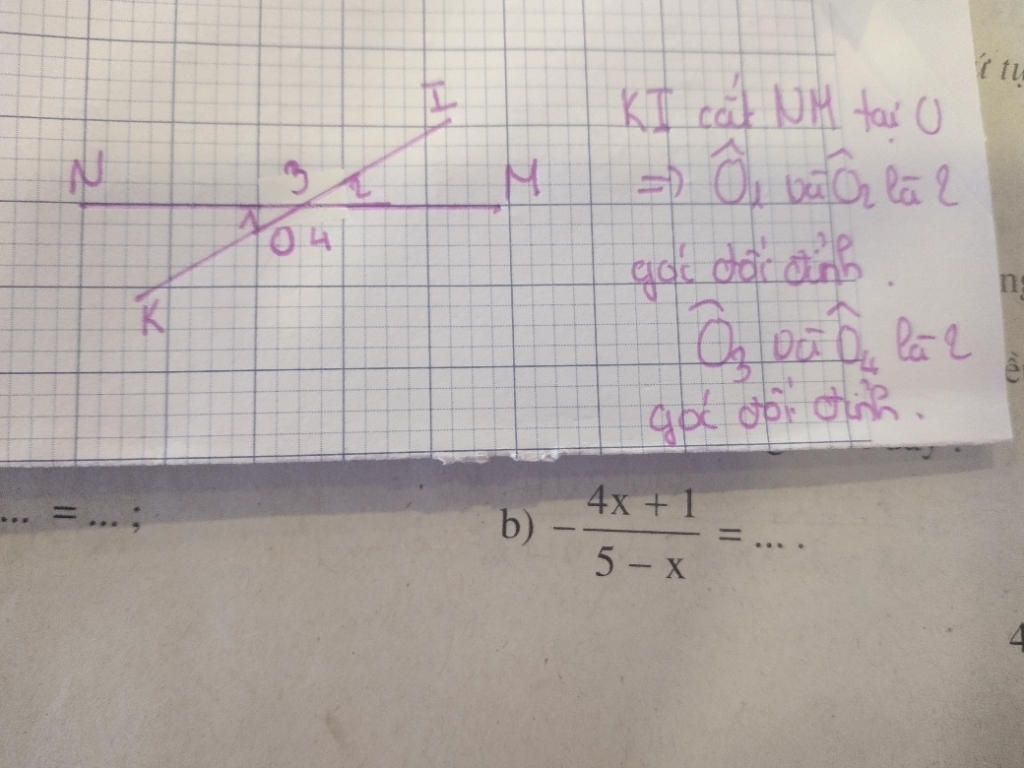 I
N
3
2
M
1
O 4
K
KI cắt NM tại O
=> Ô1 và Ô2 là 2
góc đối đỉnh.
Ô3 và Ô4 là 2
góc đối đỉnh.
... = ... ;
b) − (4x + 1)/(5 − x) = ... .
4